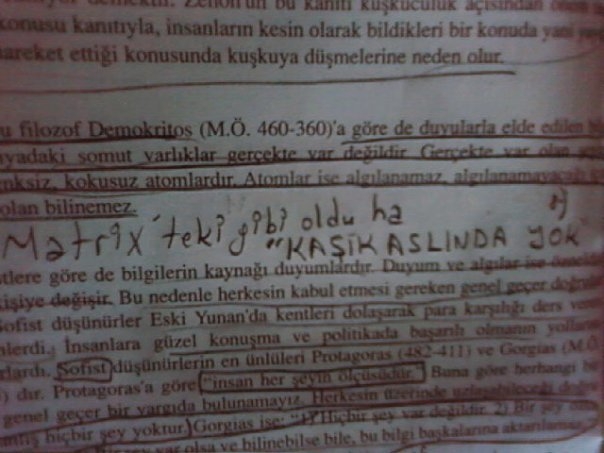 Zenon'un bu kanıtı kuşkuculuk açısından
konusu kanıtıyla, insanların kesin olarak bildikleri bir konuda yani
hareket ettiği konusunda kuşkuya düşmelerine neden olur.
filozof Demokritos (M.Ö. 460-360)'a göre de duyularla elde edilen
somut varlıklar gerçekte var değildir. Gerçekte var olan
kokusuz atomlardır. Atomlar ise algılanamaz, algılanamayacağı
olan bilinemez.
Matrix'teki gibi oldu ha
"KAŞIK ASLINDA YOK"
göre de bilgilerin kaynağı duyumlardır. Duyum ve algılar ise
kişiye değişir. Bu nedenle herkesin kabul etmesi gereken genel geçer
Sofist düşünürler Eski Yunan'da kentleri dolaşarak para karşılığı ders
İnsanlara güzel konuşma ve politikada başarılı olmanın
Sofist düşünürlerin en ünlüleri Protagoras (482-411) ve Gorgias (M.Ö.
dır. Protagoras'a göre "insan her şeyin ölçüsüdür." Buna göre herhangi
genel geçer bir yargıda bulunamayız. Herkesin üzerinde
hiçbir şey yoktur. Gorgias ise: "1) Hiçbir şey var değildir. 2) Bir şey
var olsa ve bilinebilse bile, bu bilgi başkalarına aktarılamaz.